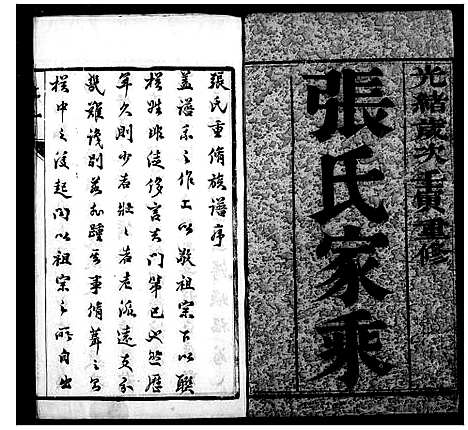 光緒歲次壬寅重修
張氏家乘
張氏重脩族譜序
蓋譜系之作上以敬祖宗下以聯
族姓非徒侈言夫門第已也然歷
年久則少者壯壯者老派遠支分
幾難識別若非踵其事脩葺之焉
族中之後起問以祖宗之所自出